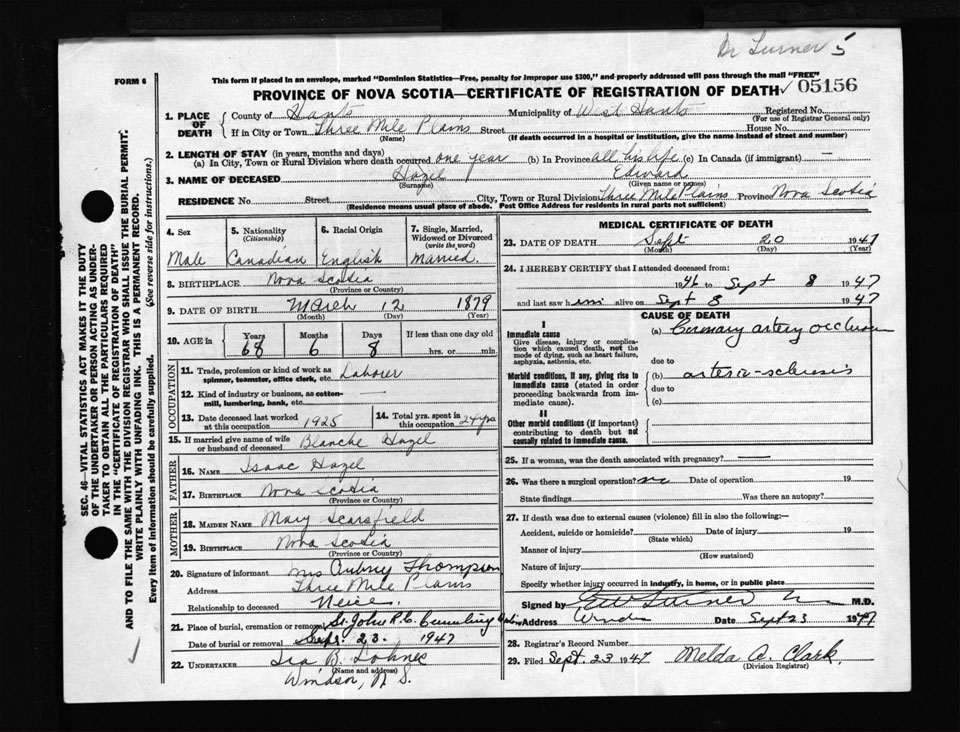 Dr Turner 5
FORM 6
This form if placed in an envelope, marked "Dominion Statistics—Free, penalty for improper use $300," and properly addressed will pass through the mail "FREE"
PROVINCE OF NOVA SCOTIA—CERTIFICATE OF REGISTRATION OF DEATH ✓ 05156
SEC. 46—VITAL STATISTICS ACT MAKES IT THE DUTY
OF THE UNDERTAKER OR PERSON ACTING AS UNDER-
TAKER TO OBTAIN ALL THE PARTICULARS REQUIRED
IN THE "CERTIFICATE OF REGISTRATION OF DEATH"
AND TO FILE THE SAME WITH THE DIVISION REGISTRAR WHO SHALL ISSUE THE BURIAL PERMIT.
WRITE PLAINLY WITH UNFADING INK. THIS IS A PERMANENT RECORD.
Every item of information should be carefully supplied. (See reverse side for instructions.)
1. PLACE OF DEATH
County of Hants Municipality of West Hants Registered No.
(For use of Registrar General only)
If in City or Town Three Mile Plains Street House No.
(Name) (If death occurred in a hospital or institution, give the name instead of street and number)
2. LENGTH OF STAY (in years, months and days)
(a) In City, Town or Rural Division where death occurred one year (b) In Province all his life (c) In Canada (if immigrant) —
3. NAME OF DECEASED Hazel Edward
(Surname) (Given name or names)
RESIDENCE No. Street City, Town or Rural Division Three Mile Plains Province Nova Scotia
(Residence means usual place of abode. Post Office Address for residents in rural parts not sufficient)
4. Sex
Male
5. Nationality
(Citizenship)
Canadian
6. Racial Origin
English
7. Single, Married,
Widowed or Divorced
(write the word)
Married.
8. BIRTHPLACE Nova Scotia
(Province or Country)
9. DATE OF BIRTH March 12 1879
(Month) (Day) (Year)
10. AGE in
Years Months Days If less than one day old
68 6 8 hrs. or min.
OCCUPATION
11. Trade, profession or kind of work as Laborer
spinner, teamster, office clerk, etc.
12. Kind of industry or business, as cotton- —
mill, lumbering, bank, etc.
13. Date deceased last worked
at this occupation 1925
14. Total yrs. spent in
this occupation 24 yrs
15. If married give name of wife
or husband of deceased Blanche Hazel
FATHER
16. NAME Isaac Hazel
17. BIRTHPLACE Nova Scotia
(Province or Country)
MOTHER
18. MAIDEN NAME Mary Scarsfield
19. BIRTHPLACE Nova Scotia
(Province or Country)
20. Signature of informant Mrs Aubrey Thompson
Address Three Mile Plains
Relationship to deceased Neice.
21. Place of burial, cremation or removal St. John R.C.
Date of burial or removal Sept. 23. 1947
22. UNDERTAKER Ira B. Lohnes
(Name and address)
Windsor, N.S.
MEDICAL CERTIFICATE OF DEATH
23. DATE OF DEATH Sept 20 1947
(Month) (Day) (Year)
24. I HEREBY CERTIFY that I attended deceased from:
1946 to Sept 8 1947
and last saw him alive on Sept 8 1947
CAUSE OF DEATH
I
Immediate cause
Give disease, injury or complica-
tion which caused death, not the
mode of dying, such as heart failure,
asphyxia, asthenia, etc.
(a) Coronary artery occlusion
due to
Morbid conditions, if any, giving rise to
immediate cause (stated in order
proceeding backwards from im-
mediate cause).
(b) arterio-sclerosis
due to
(c)
II
Other morbid conditions (if important)
contributing to death but not
causally related to immediate cause.
25. If a woman, was the death associated with pregnancy? —
26. Was there a surgical operation? no Date of operation 19
State findings Was there an autopsy?
27. If death was due to external causes (violence) fill in also the following:—
Accident, suicide or homicide? Date of injury 19
(State which)
Manner of injury
(How sustained)
Nature of injury
Specify whether injury occurred in industry, in home, or in public place
Signed by Turner M.D.
Address Windsor Date Sept 23 1947
28. Registrar's Record Number
29. Filed Sept. 23 1947 Melda A. Clark,
(Division Registrar)